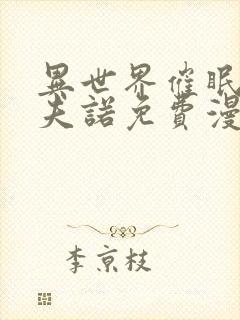 異世界催眠
夫諾免費漫
李京枝